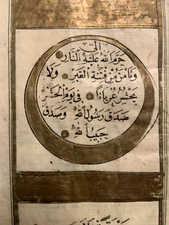 الى
حرم الله عليه النار
ويأمن من فتنة القبر ولا
يحشر عريانا في يوم الحشر
صدق رسول الله وصدق
حبيب الله